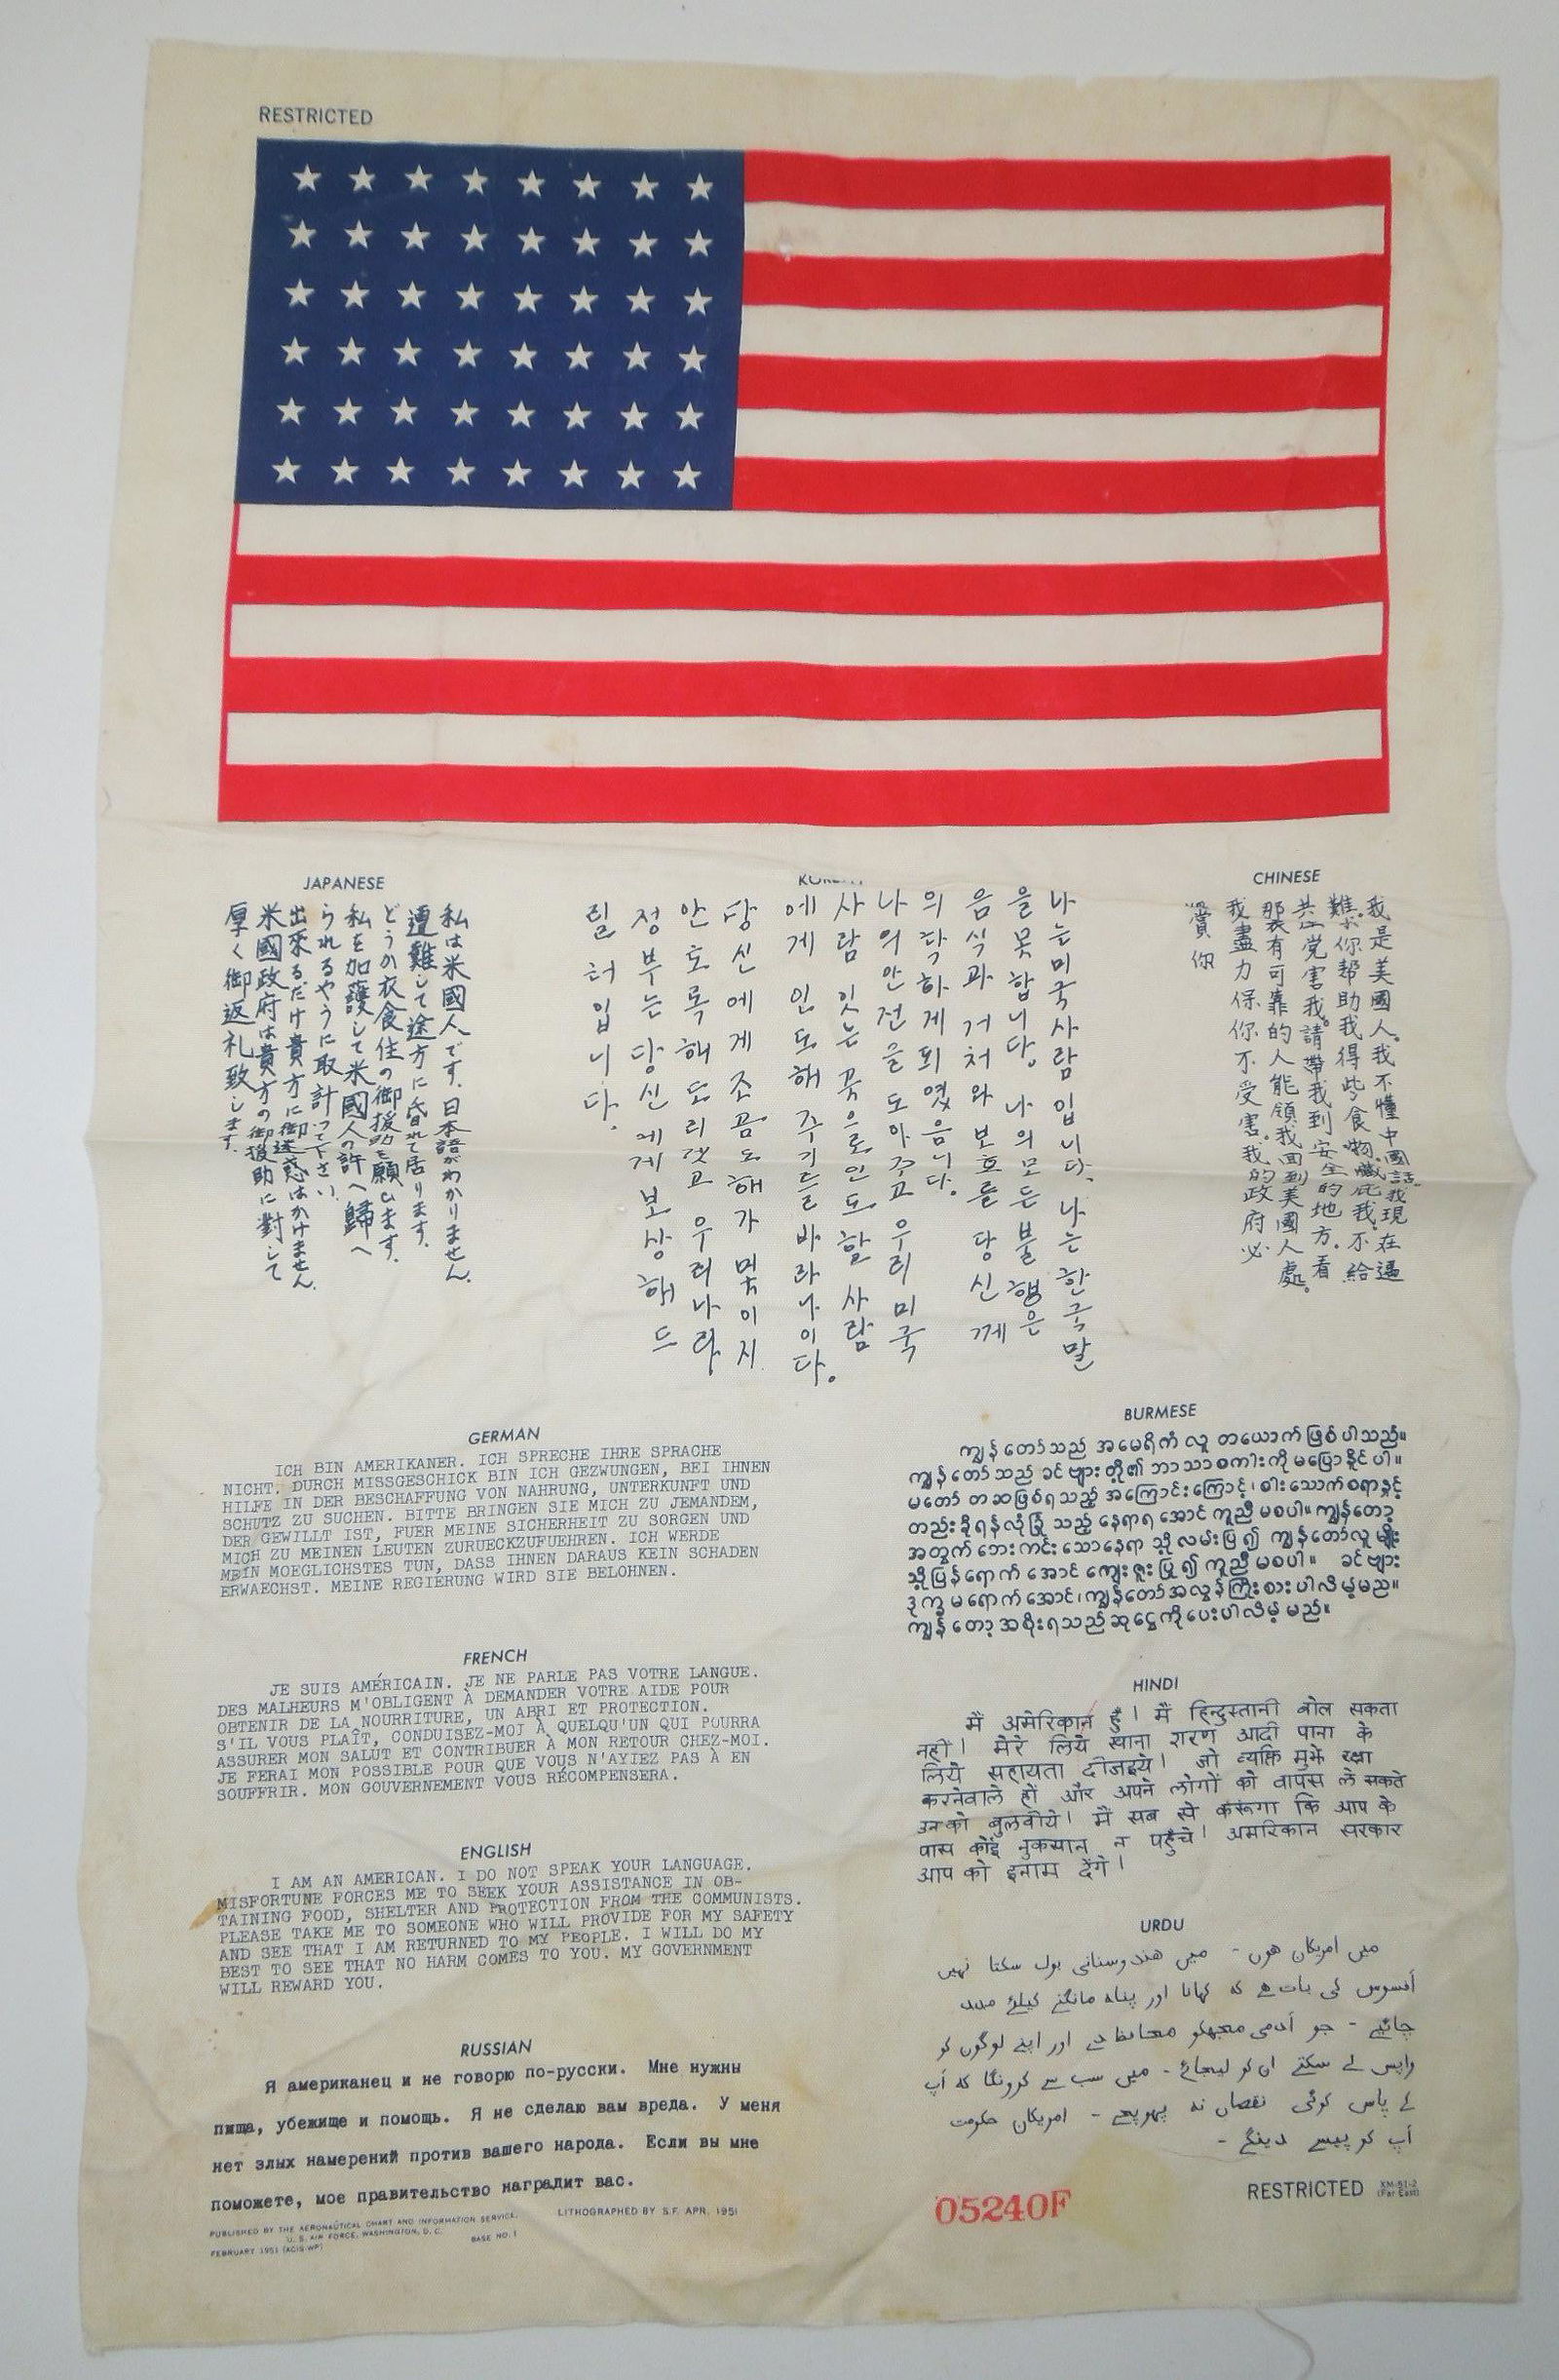 RESTRICTED
JAPANESE
私は米國人です.日本語がわかりません.
遭難して途方に昏れて居ります.
どうか衣食住の御援助を願ひます.
私を加護して米國人の許へ歸へ
られるやうに取計って下さい.
出來るだけ貴方に御迷惑はかけません.
米國政府は貴方の御援助に對して
厚く御返礼致します.
KOREAN
나는미국사람입니다. 나는한국말
을못합니다. 나의모든불행은
음식과 거처와 보호를 당신께
의탁하게되였음니다.
나의안전을도아주고 우리미국
사람잇는곳으로인도할 사람
에게 인도해주기를바라나이다.
당신에게조곰도해가밋치지
안토록해드리겟고 우리나라
정부는당신에게보상해드
릴터입니다.
CHINESE
我是美國人。我不懂中國話。我現在逼
難。你幇助我得些食物。藏庇我。不給
共产党害我。請帶我到安全的地方。看
那裏有可靠的人能領我回到美國人處。
我盡力保你不受害。我的政府必
賞你
GERMAN
ICH BIN AMERIKANER. ICH SPRECHE IHRE SPRACHE
NICHT. DURCH MISSGESCHICK BIN ICH GEZWUNGEN, BEI IHNEN
HILFE IN DER BESCHAFFUNG VON NAHRUNG, UNTERKUNFT UND
SCHUTZ ZU SUCHEN. BITTE BRINGEN SIE MICH ZU JEMANDEM,
DER GEWILLT IST, FUER MEINE SICHERHEIT ZU SORGEN UND
MICH ZU MEINEN LEUTEN ZURUECKZUFUEHREN. ICH WERDE
MEIN MOEGLICHSTES TUN, DASS IHNEN DARAUS KEIN SCHADEN
ERWAECHST. MEINE REGIERUNG WIRD SIE BELOHNEN.
FRENCH
JE SUIS AMÉRICAIN. JE NE PARLE PAS VOTRE LANGUE.
DES MALHEURS M'OBLIGENT À DEMANDER VOTRE AIDE POUR
OBTENIR DE LA NOURRITURE, UN ABRI ET PROTECTION.
S'IL VOUS PLAÎT, CONDUISEZ-MOI À QUELQU'UN QUI POURRA
ASSURER MON SALUT ET CONTRIBUER À MON RETOUR CHEZ-MOI.
JE FERAI MON POSSIBLE POUR QUE VOUS N'AYIEZ PAS À EN
SOUFFRIR. MON GOUVERNEMENT VOUS RÉCOMPENSERA.
ENGLISH
I AM AN AMERICAN. I DO NOT SPEAK YOUR LANGUAGE.
MISFORTUNE FORCES ME TO SEEK YOUR ASSISTANCE IN OB-
TAINING FOOD, SHELTER AND PROTECTION FROM THE COMMUNISTS.
PLEASE TAKE ME TO SOMEONE WHO WILL PROVIDE FOR MY SAFETY
AND SEE THAT I AM RETURNED TO MY PEOPLE. I WILL DO MY
BEST TO SEE THAT NO HARM COMES TO YOU. MY GOVERNMENT
WILL REWARD YOU.
RUSSIAN
Я американец и не говорю по-русски. Мне нужны
пища, убежище и помощь. Я не сделаю вам вреда. У меня
нет злых намерений против вашего народа. Если вы мне
поможете, мое правительство наградит вас.
PUBLISHED BY THE AERONAUTICAL CHART AND INFORMATION SERVICE,
U. S. AIR FORCE, WASHINGTON, D. C.
FEBRUARY 1951 (ACIS-WP)
BASE NO. 1
LITHOGRAPHED BY S.F. APR. 1951
BURMESE
ကျွန်တော်သည် အမေရိကံ လူ တယောက် ဖြစ်ပါသည်။
ကျွန်တော်သည် ခင်ဗျားတို့၏ ဘာသာစကားကို မပြောနိုင်ပါ။
မတော် တဆဖြစ်ရသည့် အကြောင်းကြောင့်၊ စားသောက်စရာနှင့်
တည်းခိုရန်လုံခြုံ သည့် နေရာရအောင် ကူညီ မစပါ။ ကျွန်တော့
အတွက် ဘေးကင်းသောနေရာ သို့ လမ်းပြ၍ ကျွန်တော်လူမျိုး
သို့ပြန်ရောက်အောင် ကျေးဇူးပြု၍ ကူညီ မစပါ။ ခင်ဗျား
ဒုက္ခ မရောက်အောင်၊ ကျွန်တော်အလွန်ကြိုးစားပါလိမ့်မည်။
ကျွန်တော့အစိုးရသည်ဆုငွေကိုပေးပါလိမ့်မည်။
HINDI
मैं अमेरिकान हूँ। मैं हिन्दुस्तानी बोल सकता
नहीं। मेरे लिये खाना शरण आदी पाना के
लिये सहायता दीजइये। जो व्यक्ति मुझे रक्षा
करनेवाले हों और अपने लोगों को वापस ले सकते
उनको बुलवीये। मैं सब से करूंगा कि आप के
पास कोई नुकसान न पहुँचे। अमरिकान सरकार
आप को इनाम देंगे।
URDU
میں امریکان ہوں - میں هندوستانی بول سکتا نہیں
افسوس کی بات هے کہ کھانا اور پناہ مانگنے کیلئے مدد
چاہیے - جو آدمی مجھکو محافظ دے اور اپنے لوگوں کو
واپس لے سکتے ان کو لیجائے - میں سب سے کرونگا کہ آپ
کے پاس کوئی نقصان نہ پہونچے - امریکان حکومت
آپ کو پیسے دینگے -
RESTRICTED
XM-51-2
(Far East)
05240F